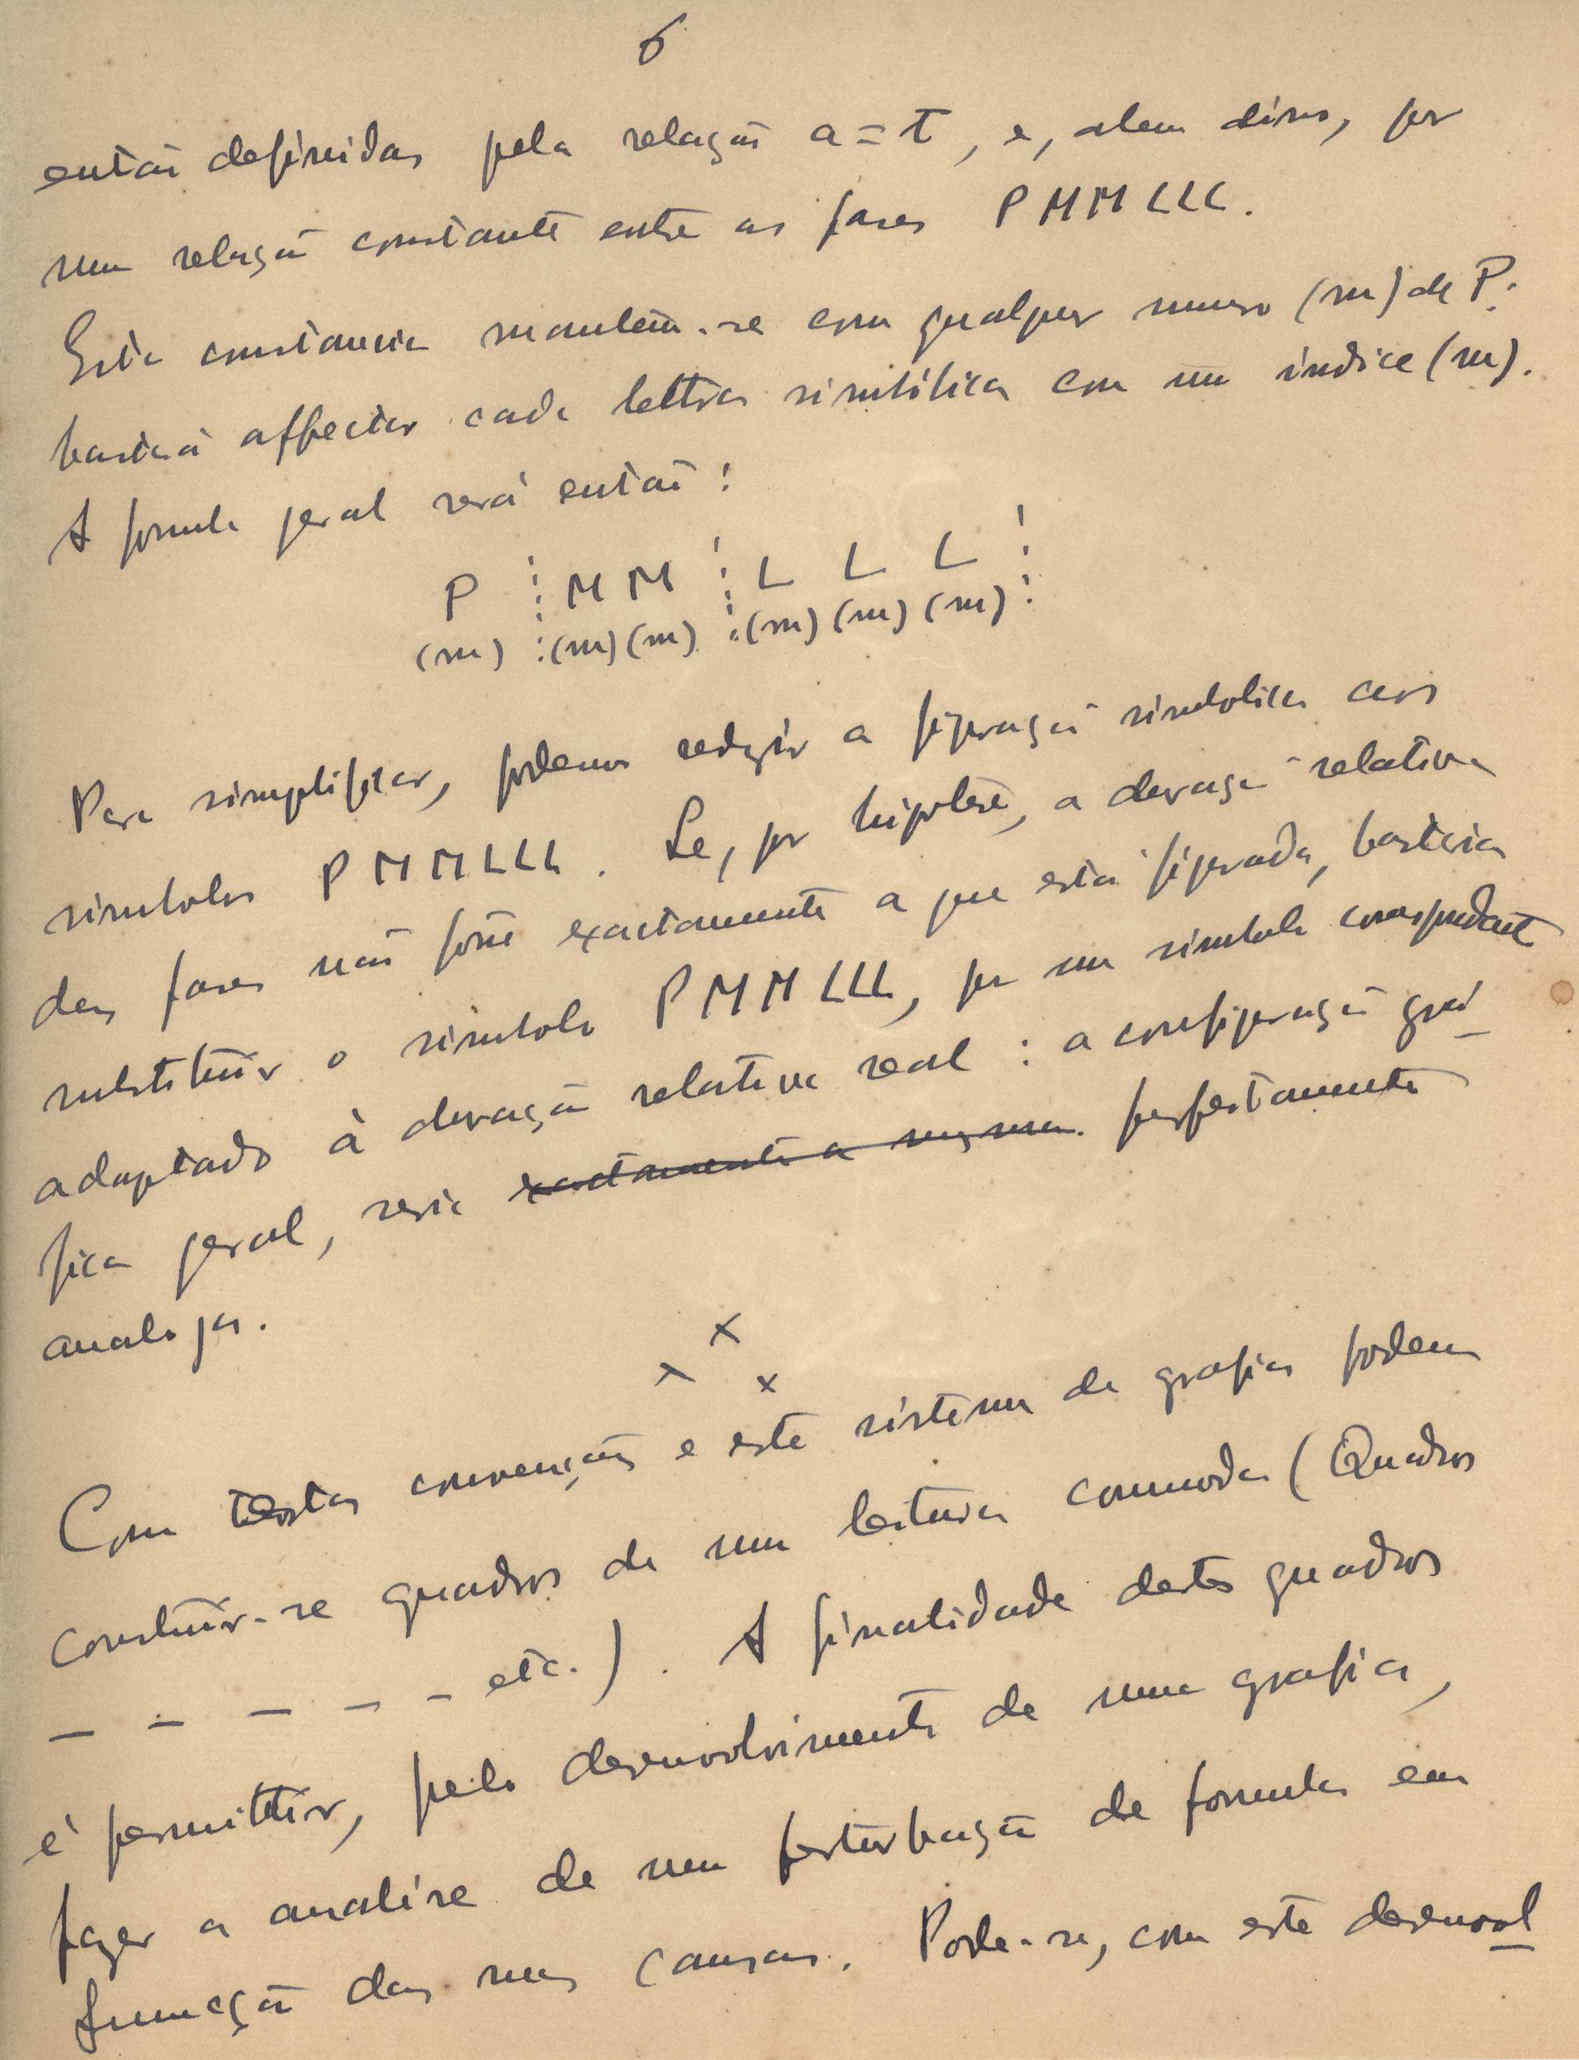 6
então definidas pela relação a = t, e, alem disso, por
uma relação constante entre as fases PMMLLL.
Esta constancia mantem-se com qualquer numero (m) de P.
bastará affectar cada lettra simbólica com um indice (m).
A formula geral será então:
P ⋮ M M ⋮ L L L ⋮
(m) ⋮ (m) (m) ⋮ (m) (m) (m) ⋮
Para simplificar, podemos redigir a figuração simbolica aos
simbolos PMMLLL. Se, por hipotese, a duração relativa
das fases não fosse exactamente a que está figurada, bastaria
substituir o simbolo PMMLLL, por um simbolo correspondente
adaptado à duração relativa real: a configuração grá
fica geral, seria exactamente a mesma. perfeitamente
analoga.
x x x
Com estas convenções e este sistema de grafica podem
construir-se quadros de uma leitura commoda (Quadros
— — — — — etc.). A finalidade destes quadros
é permittir, pelo desenvolvimento de uma grafica,
fazer a analise de uma perturbação de formula em
funcção das suas causas. Pode-se, com este desenvol